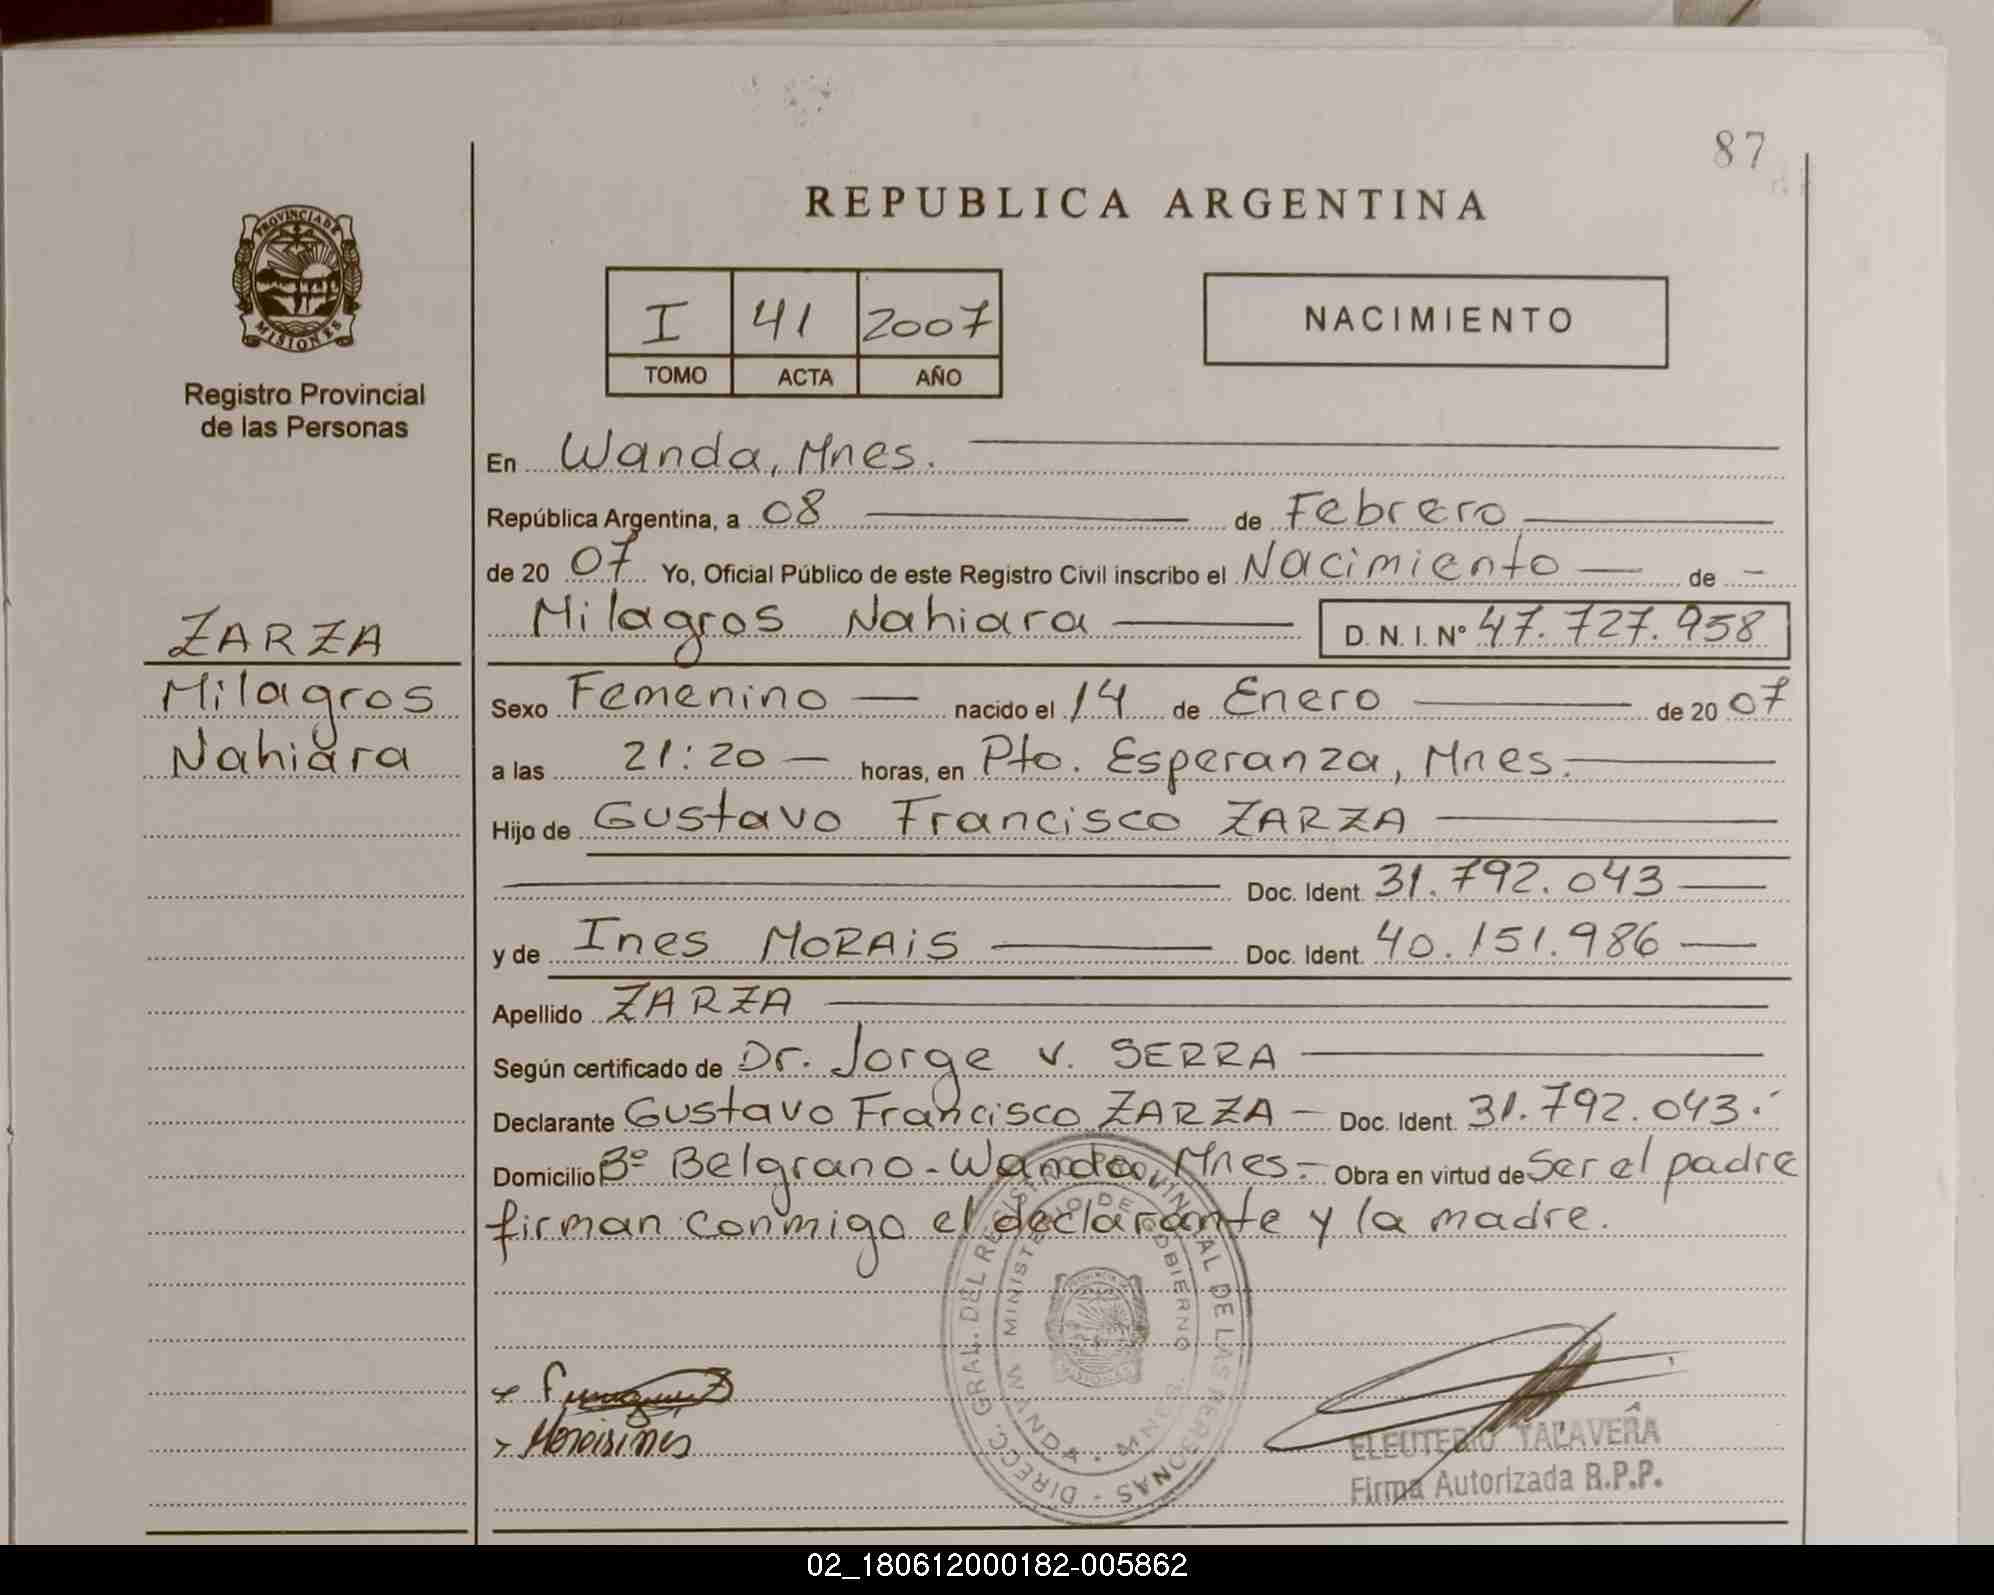 87
REPUBLICA ARGENTINA
PROVINCIA DE
MISIONES
Registro Provincial
de las Personas
I 41 2007
TOMO ACTA AÑO
NACIMIENTO
En Wanda, Mnes.
República Argentina, a 08 de Febrero
de 20 07 Yo, Oficial Público de este Registro Civil inscribo el Nacimiento de
ZARZA
Milagros
Nahiara
Milagros Nahiara D. N. I. Nº 47.727.958
Sexo Femenino nacido el 14 de Enero de 20 07
a las 21:20 horas, en Pto. Esperanza, Mnes.
Hijo de Gustavo Francisco ZARZA
Doc. Ident. 31.792.043
y de Ines MORAiS Doc. Ident. 40.151.986
Apellido ZARZA
Según certificado de Dr. Jorge V. SERRA
Declarante Gustavo Francisco ZARZA Doc. Ident. 31.792.043.
Domicilio Bº Belgrano - Wanda, Mnes. Obra en virtud de Ser el padre
firman conmigo el declarante y la madre.
DIRECC. GRAL. DEL REGISTRO PROVINCIAL DE LAS PERSONAS
MINISTERIO DE GOBIERNO
WANDA - MNES.
Morais ines
ELEUTERIO TALAVERA
Firma Autorizada R.P.P.
02_180612000182-005862